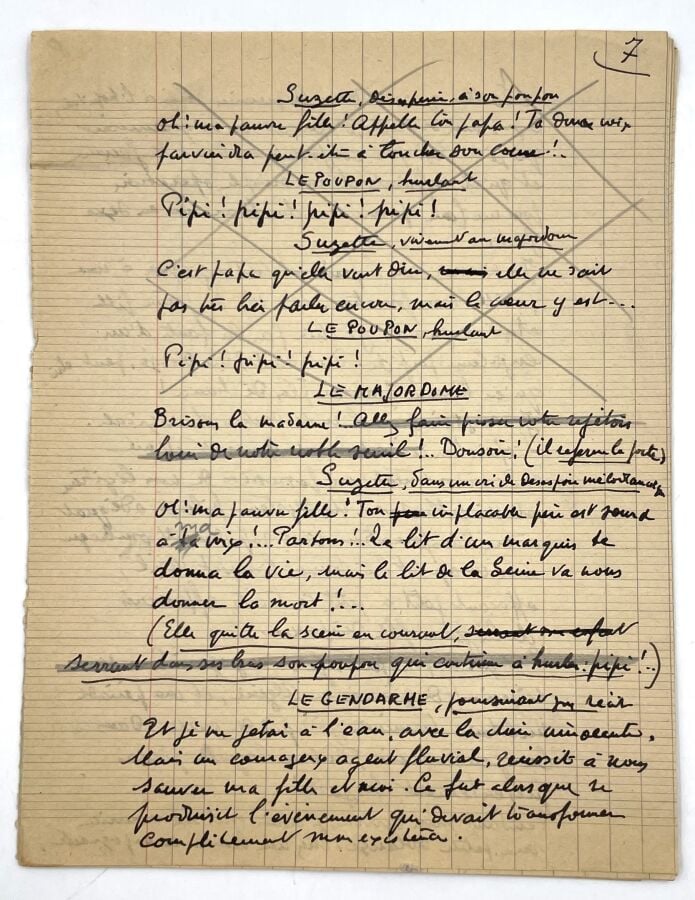 7
Suzette, désespérée, à son poupon
Oh! ma pauvre fille! Appelle ton papa! Ta douce voix
parviendra peut-être à toucher son cœur!..
LE POUPON, hurlant
Pipi! pipi! pipi! pipi!
Suzette, vivement au majordome
C'est papa qu'elle veut dire, mais elle ne sait
pas très bien parler encore, mais le cœur y est...
LE POUPON, hurlant
Pipi! pipi! pipi!
LE MAJORDOME
Brisons là madame!.. Allez faire pisser votre rejeton
loin de notre noble seuil!.. Bonsoir! (il referme la porte)
Suzette, dans un cri de désespoir mélodramatique
Oh! ma pauvre fille! Ton implacable père est sourd
à ma voix!... Partons!.. Le lit d'un marquis te
donna la vie, mais le lit de la Seine va nous
donner la mort!...
(Elle quitte la scène en courant, serrant son enfant
serrant dans ses bras son poupon qui continue à hurler: pipi!..)
LE GENDARME, poursuivant son récit
Et je me jetai à l'eau, avec la chère innocente.
Mais un courageux agent fluvial, réussit à nous
sauver ma fille et moi. Ce fut alors que se
produisit l'événement qui devait transformer
complètement mon existence.